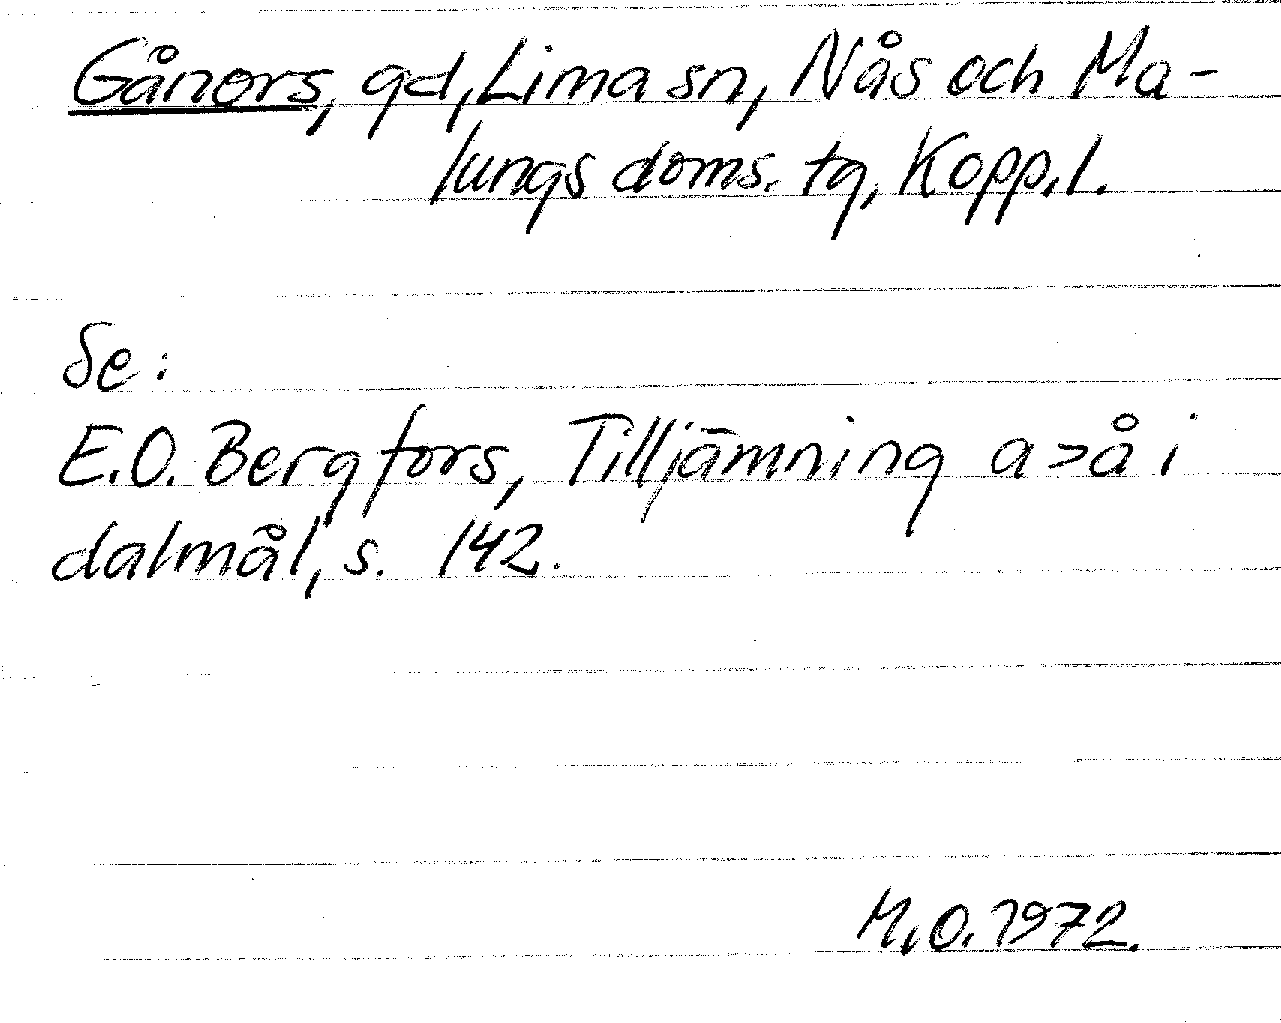 Gånors, gd, Lima sn, Nås och Ma-
lungs doms. tg, Kopp. l.
Se:
E.O. Bergfors, Tilljämning a>å i
dalmål, s. 142.
M.O. 1972.